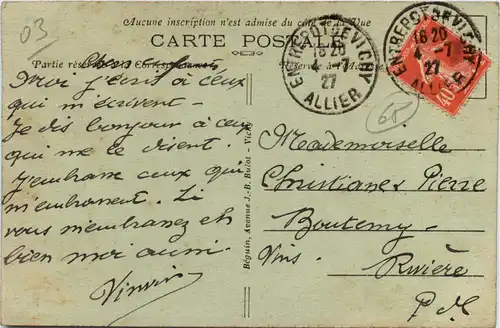 03
Aucune inscription n'est admise du côté de la Vue
CARTE POSTALE
Partie réservée à la Correspondance
Réservé à l'Adresse
ENTREPOT DE VICHY
16 20
-7
27
ALLIER
ENTREPOT DE VICHY
16 20
-7
27
ALLIER
65
Moi j'écris à ceux
qui m'écrivent -
Je dis bonjour à ceux
qui me le disent.
J'embrasse ceux qui
m'embrassent. Si
vous m'embrassez eh
bien moi aussi.
Béguin, Avenue J.-B. Bulot - Vichy
Mademoiselle
Christiane Pierre
Boutemy
Vins.
Rivière
P. d. C.